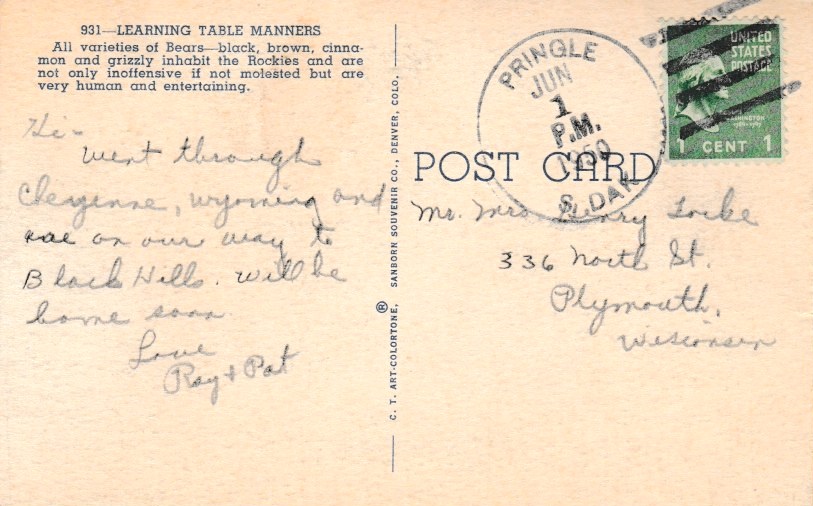 931—LEARNING TABLE MANNERS
All varieties of Bears—black, brown, cinna-
mon and grizzly inhabit the Rockies and are
not only inoffensive if not molested but are
very human and entertaining.
Hi-
Went through
Cheyenne, Wyoming and
are on our way to
Black Hills. Will be
home soon.
Love
Ray & Pat
C. T. ART-COLORTONE, ® SANBORN SOUVENIR CO., DENVER, COLO.
PRINGLE
JUN
1
P.M.
1950
S. DAK
UNITED
STATES
POSTAGE
1 CENT 1
POST CARD
Mr. Mrs Henry Locke
336 North St.
Plymouth,
Wisconsin